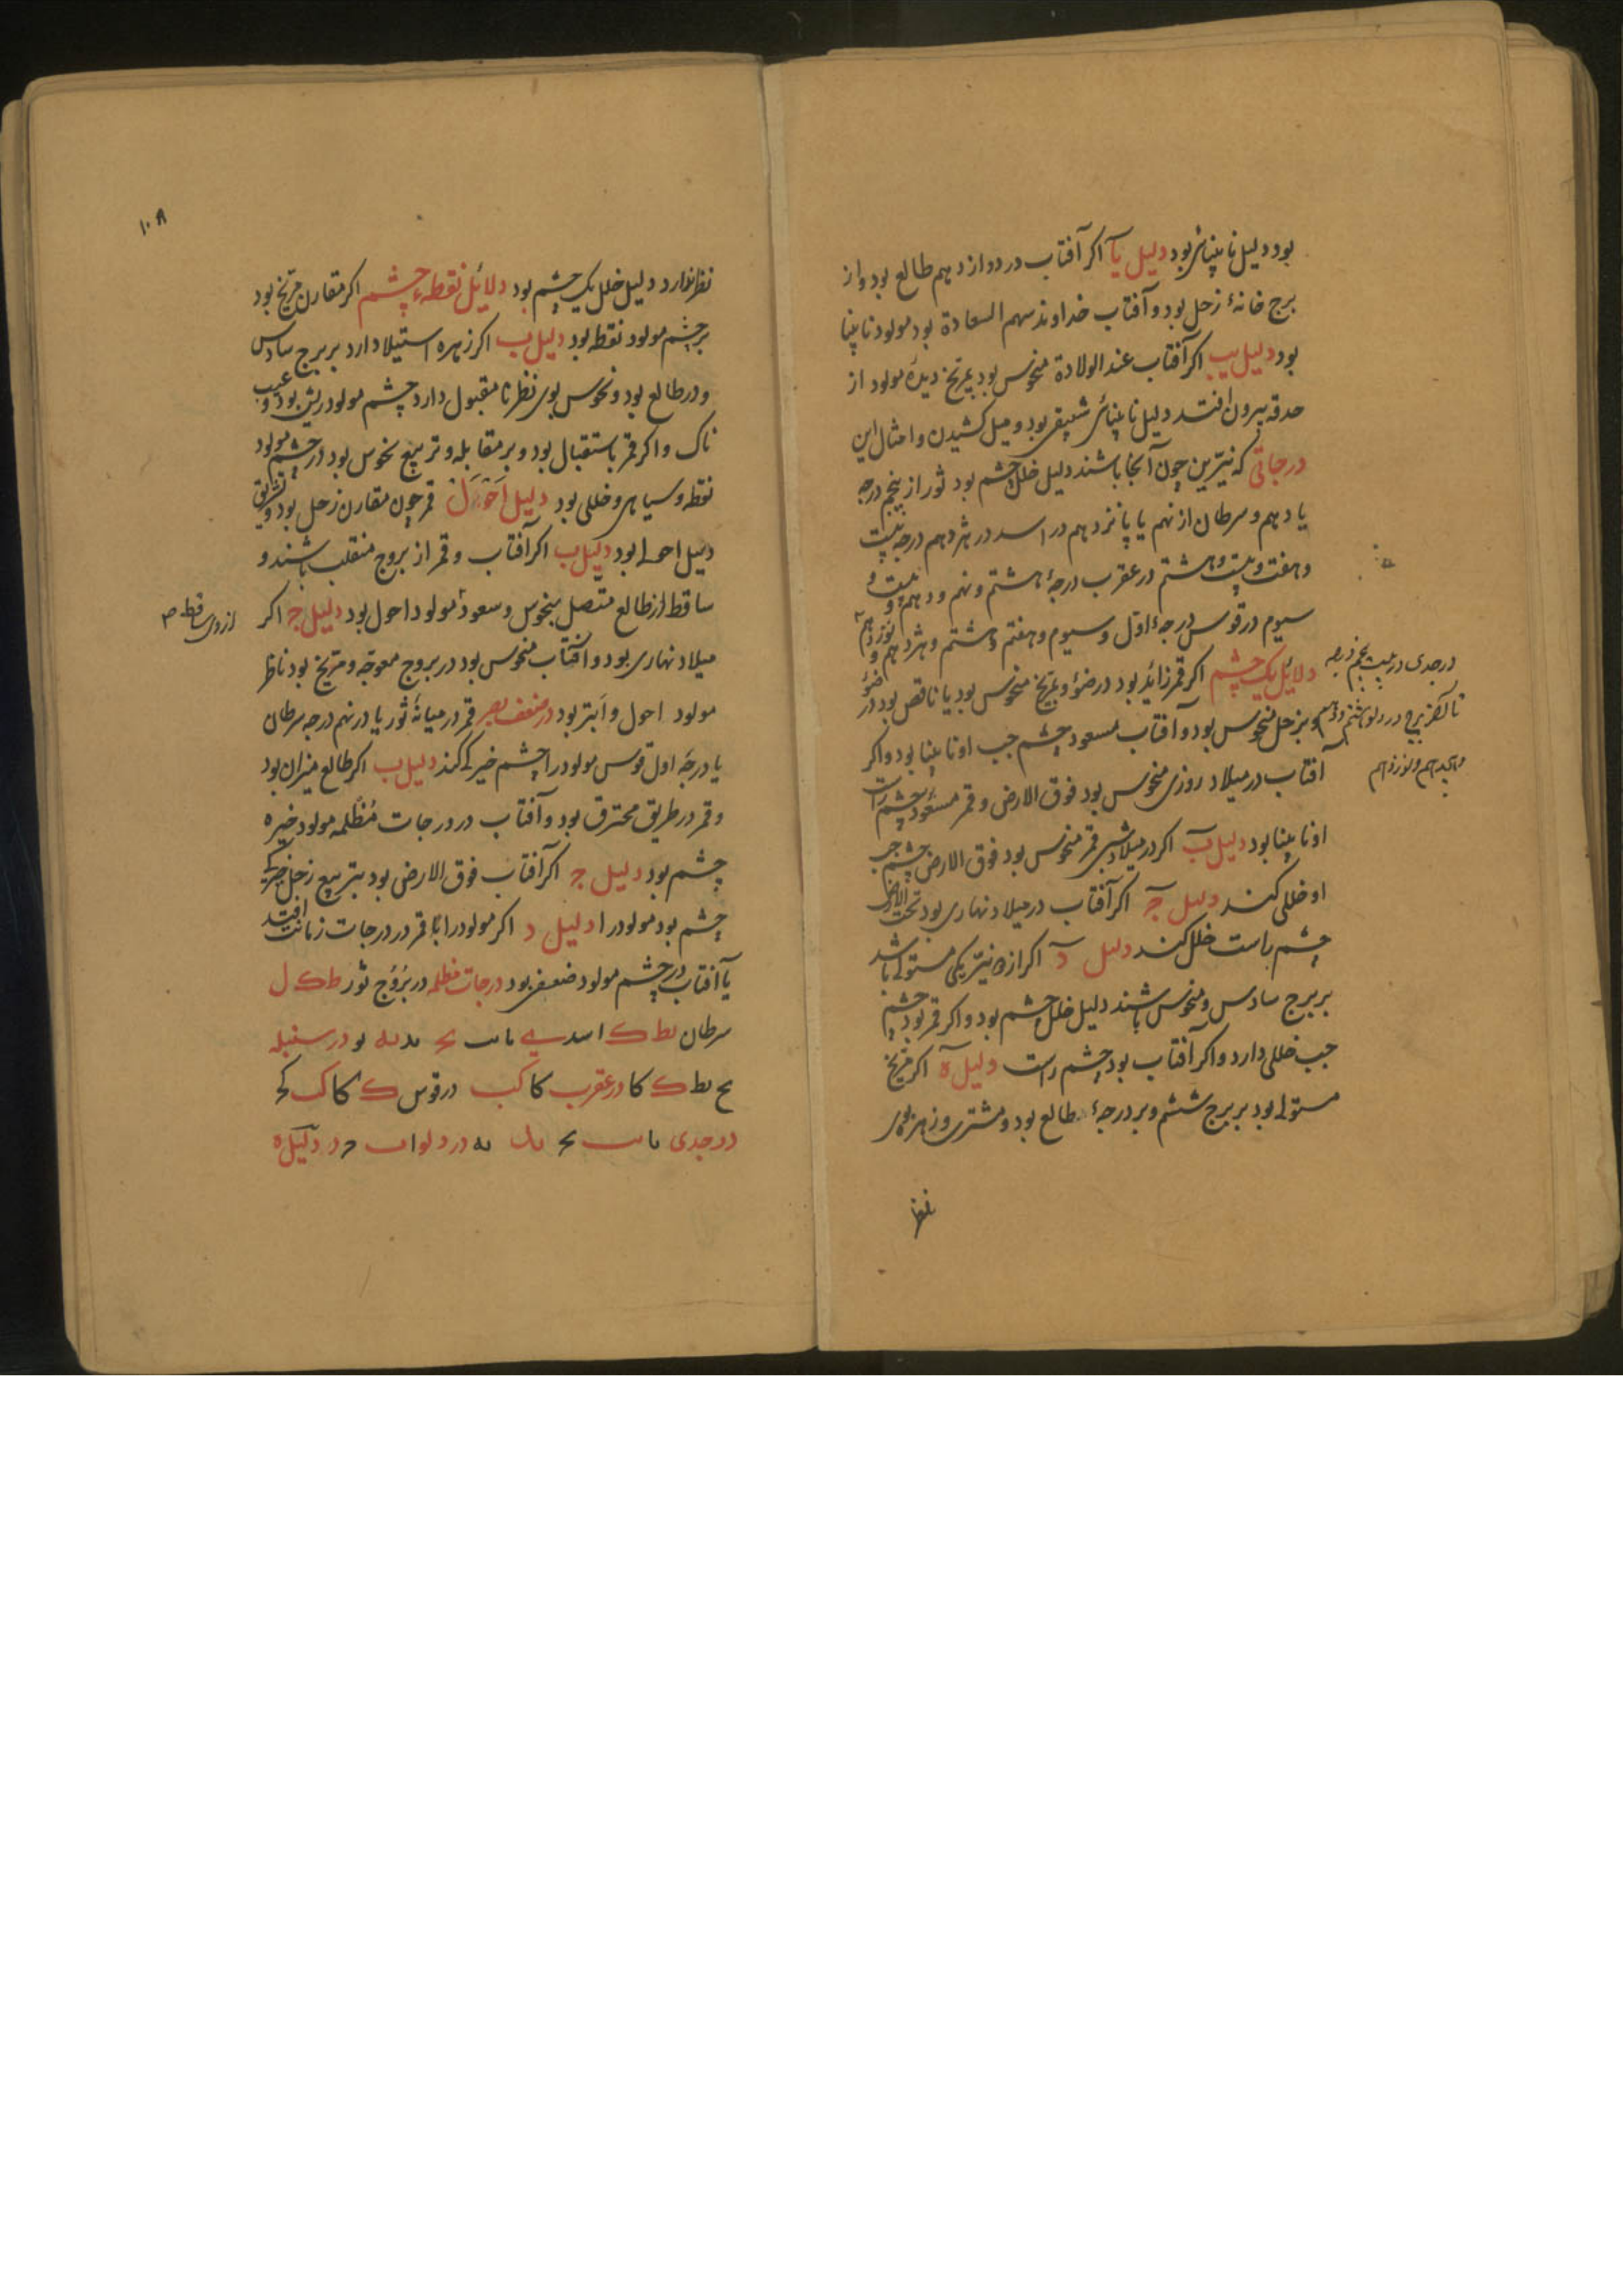 بود دلیل نابینائی بود دلیل یآ اکر آفتاب در دوازدهم طالع بود و از
برج خانهٔ زحل بود و آفتاب خداوند سهم السعادة بود مولود نابینا
بود دلیل یب اکر آفتاب عند الولادة منحوس بود بمریخ دیدهٔ مولود از
حدقه بیرون افتد دلیل نابینائی بود و میل کشیدن و امثال این
درجاتی که نیّرین چون آنجا باشند دلیل خلل چشم بود ثور از پنجم درجه
یا دهم و سرطان از نهم یا پانزدهم در اسد در هژدهم درجه بیست
و هفت و بیست و هشتم در عقرب درجهٔ هشتم و نهم و دهم و بیست و
سیوم در قوس درجهٔ اوّل و سیوم و هفتم و هشتم و هژدهم و نوزدهم
در جدی در بیست پنجم درجه
تا آخر برج در دلو هشتم و دهم
و هجدهم و نوزدهم
دلائل یک چشم اکر قمر زائد بود در ضوٴ و بمریخ منحوس بود یا ناقص بود در ضوٴ
و بزحل منحوس بود و آفتاب مسعود چشم چب او نابینا بود و اکر
آفتاب در میلاد روزی منحوس بود فوق الارض و قمر مسعود چشم راست
او نابینا بود دلیل ب اکر در میلاد شبی قمر منحوس بود فوق الارض چشم چب
او خللی کند دلیل ج اکر آفتاب در میلاد نهاری بود تحت الارض
چشم راست خلل کند دلیل د اکر از نیّر یکی مستولی باشد
بر برج سادس و منحوس باشند دلیل خلل چشم بود و اکر قمر بود چشم
چب خللی دارد و اکر آفتاب بود چشم راست دلیل ه اکر مریخ
مستولی بود بر برج ششم و بر درجهٔ طالع بود و مشتری و زهره بوی
نظر
۱۰۸
نظر ندارد دلیل خلل یک چشم بود دلائل نقطهٔ چشم اکر مقارن مریخ بود
بر چشم مولود نقطه بود دلیل ب اکر زهره استیلا دارد بر برج سادس
و در طالع بود و نحوس بوی نظر نامقبول دارد چشم مولود ریش بود و عیب
ناک و اکر قمر باستقبال بود و بر مقابله و تربیع نحوس بود در چشم مولود
نقطه و سیاهی و خللی بود دلیل احول قمر چون مقارن زحل بود
دلیل احولی بود دلیل ب اکر آفتاب و قمر از بروج منقلب باشند و
ساقط از طالع متصل بنحوس و سعود مولود احول بود دلیل ج اکر
از وی ساقط ص
میلاد نهاری بود و آفتاب منحوس بود در بروج معوجه و مریخ بود ناظر
مولود احول و ابتر بود در ضعف بصر قمر در میانهٔ ثور یا در نهم درجه سرطان
یا درجهٔ اول قوس مولود را چشم خیرکی کند دلیل ب اکر طالع میزان بود
و قمر در طریق محترق بود و آفتاب در درجات مُظلمه مولود خیره
چشم بود دلیل ج اکر آفتاب فوق الارض بود بتربیع زحل خیرکی
چشم بود مولود را دلیل د اکر مولود را قمر در درجات زمانت افتد
یا آفتاب در چشم مولود ضعف بود درجات مظلمه در بروج ثور ط ک ل
سرطان بط ک اسد در سنبله
یح بط ک کا در عقرب کا کب در قوس ک کا ک کح
در جدی در دلو دلیل ه